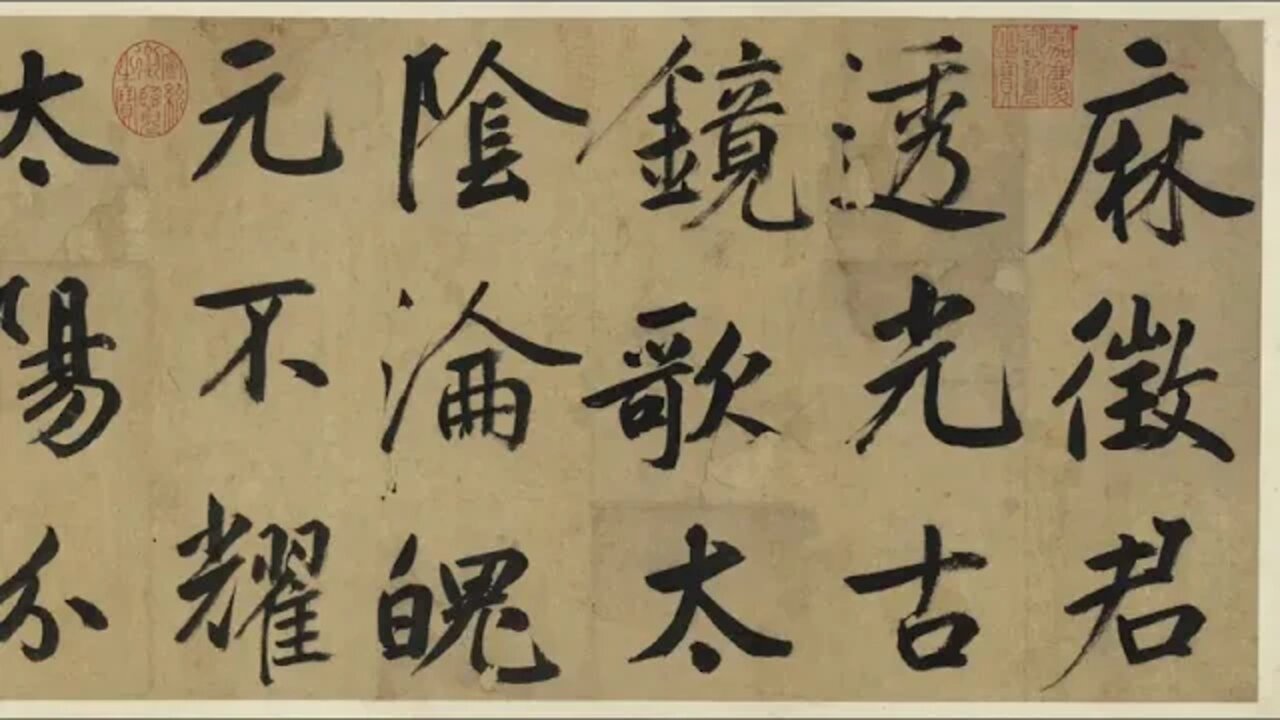 麻徵君
透光古
鏡歌太
陰淪魄
元不耀
太陽分